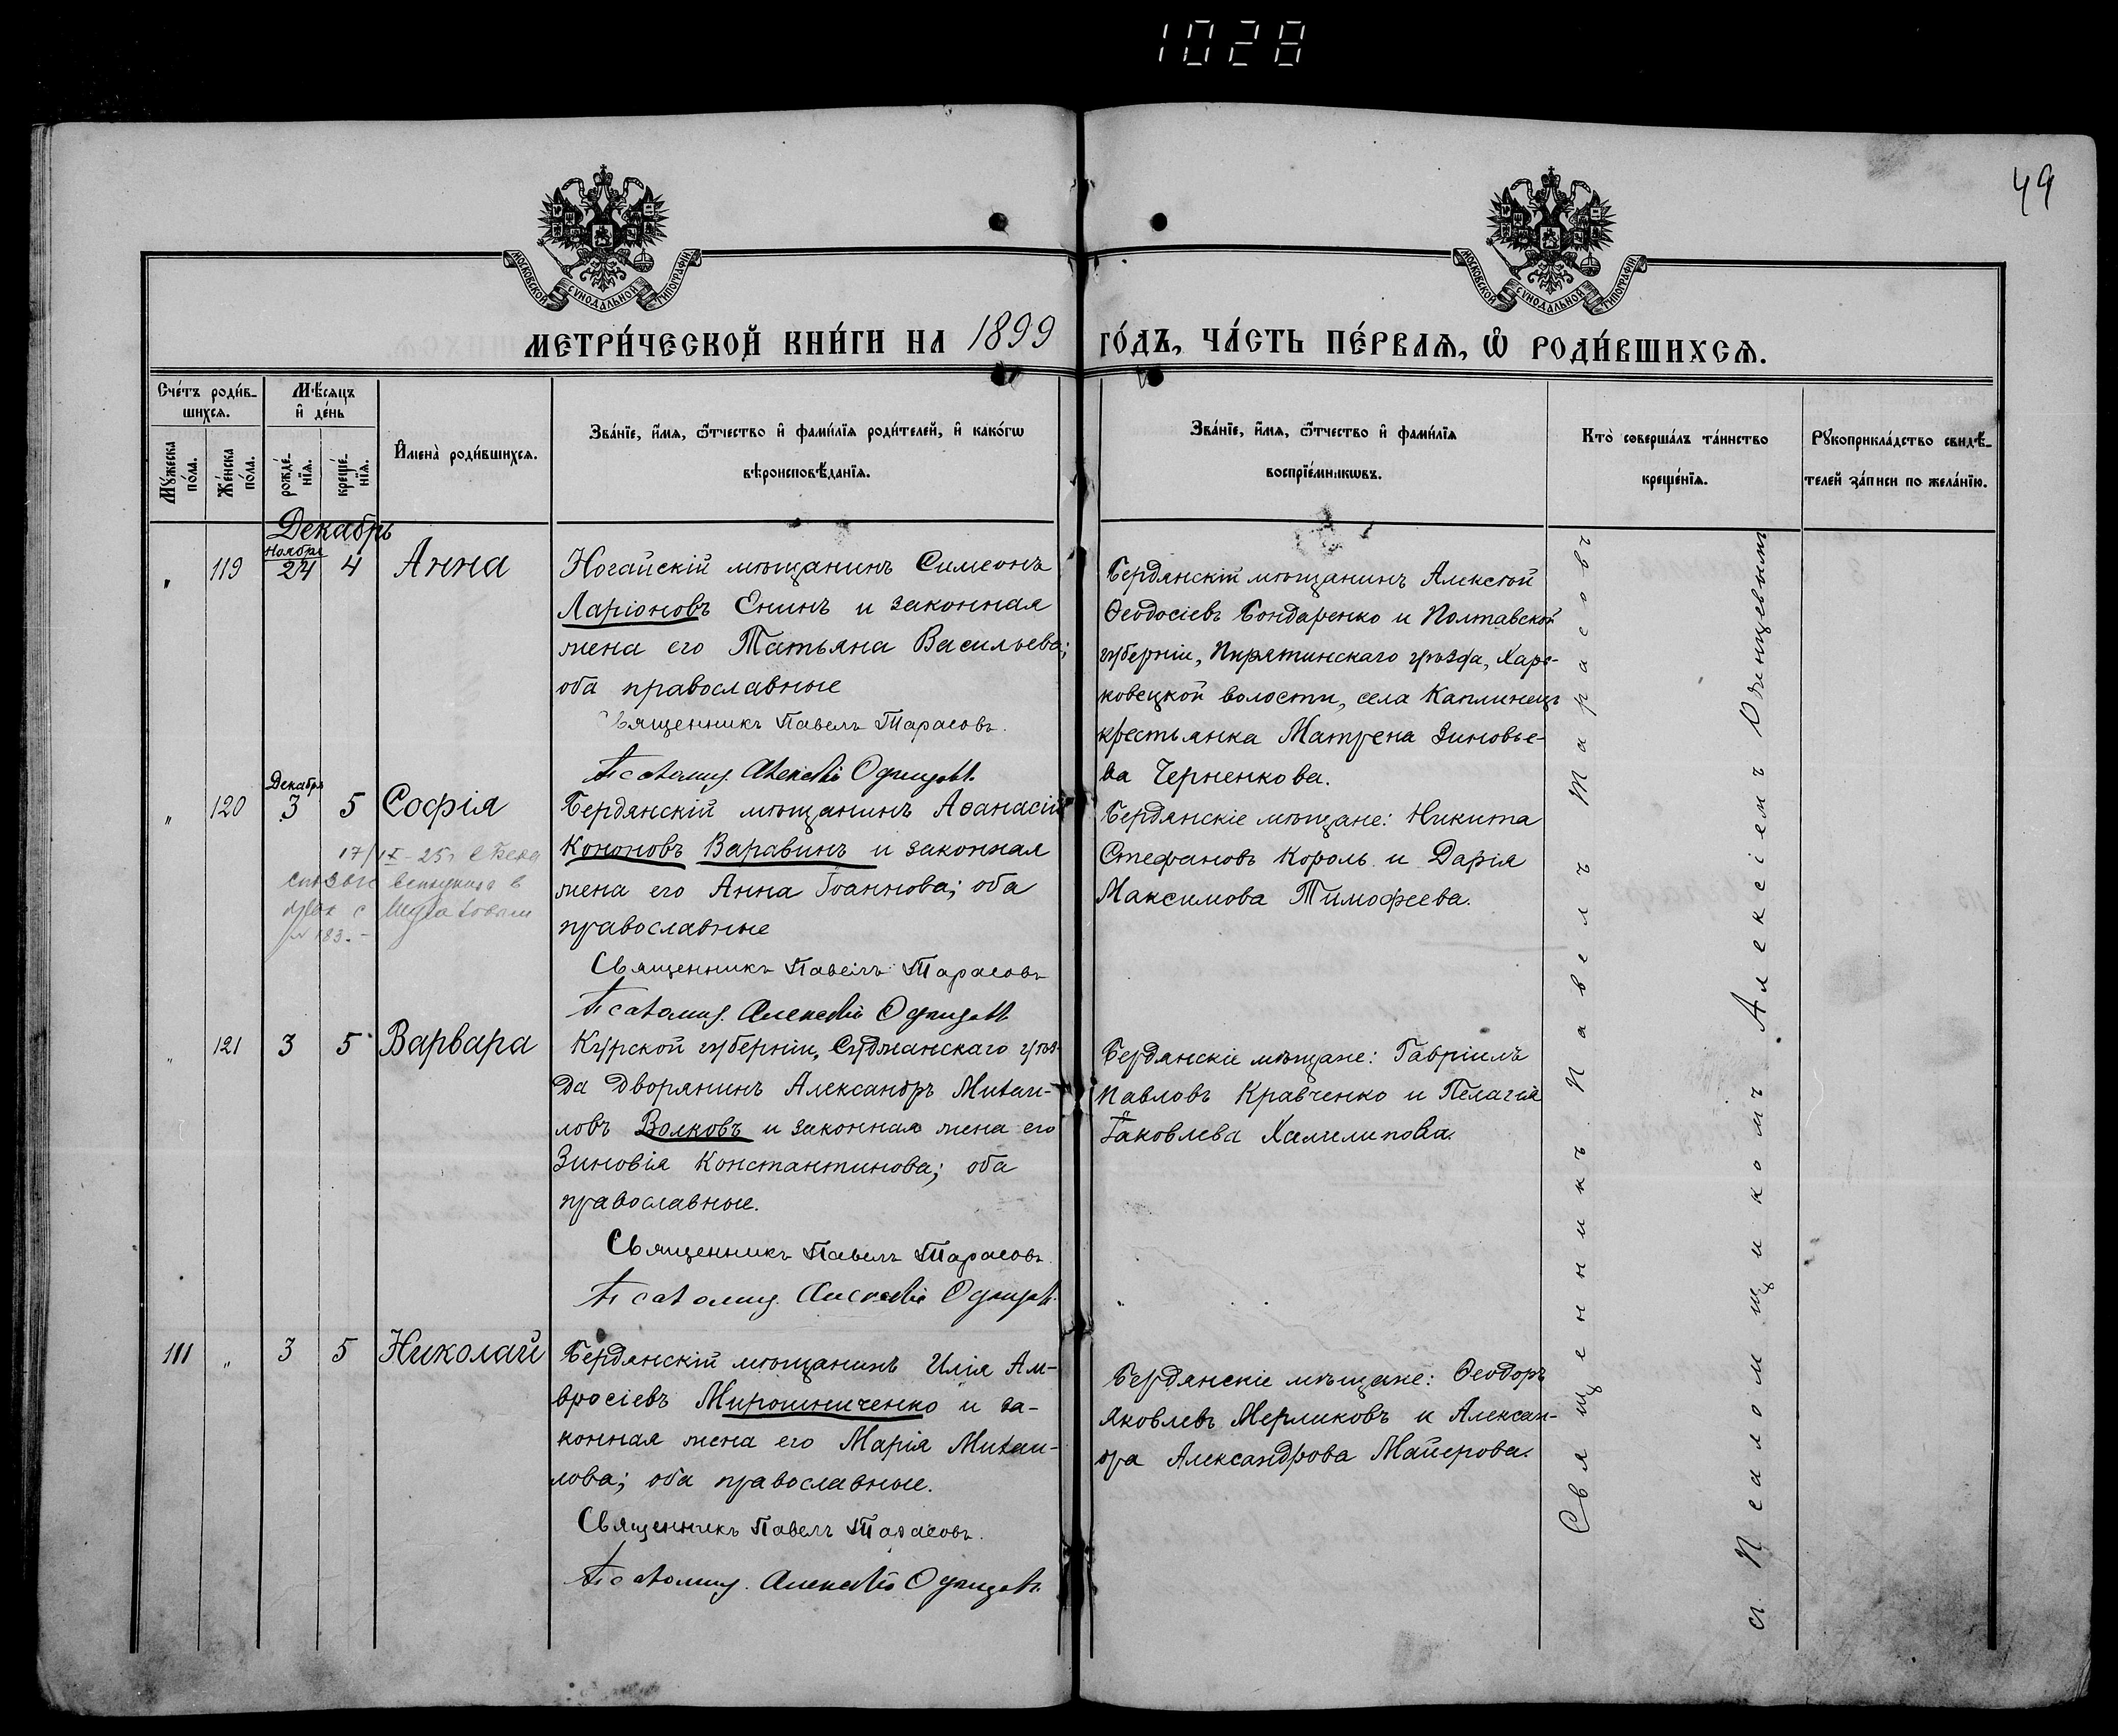 1028
49
МОСКОВСКОЙ СѴНОДАЛЬНОЙ ТИПОГРАФІИ
МОСКОВСКОЙ СѴНОДАЛЬНОЙ ТИПОГРАФІИ
МЕТРИ́ЧЕСКОЙ КНИ́ГИ НА 1899 ГО́ДЪ, ЧА́СТЬ ПЕ́РВАЯ, Ѡ РОДИ́ВШИХСЯ.
Сче́тъ роди́в-
шихся.
Мꙋ́жеска по́ла.
Же́нска по́ла.
Мѣ́сяцъ
и҆ де́нь
рожде́-
нїя.
креще́-
нїя.
И҆мена̀ роди́вшихся.
Зва́нїе, и҆́мя, ѻ҆́тчество и҆ фами́лїя роди́телей, и҆ како́гѡ
вѣроисповѣ́данїя.
Зва́нїе, и҆́мя, ѻ҆́тчество и҆ фами́лїя
воспрїе́мникѡвъ.
Кто̀ соверша́лъ та́инство
креще́нїя.
Рꙋкоприкла́дство свидѣ́-
телей за́писи по жела́нїю.
Декабрь
" 119 Ноября 24 4 Анна
Ногайскій мѣщанинъ Симеонъ
Ларіоновъ Енинъ и законная
жена его Татьяна Васильева;
оба православные
Священникъ Павелъ Тарасовъ.
Псаломщ. Алексѣй Одинцовъ.
Бердянскій мѣщанинъ Алексѣй
Ѳеодосіевъ Бондаренко и Полтавской
губерніи, Пирятинскаго уѣзда, Харь-
ковецкой волости, села Каплинецъ
крестьянка Матрена Зиновье-
ва Черненкова.
" 120 Декабря 3 5 Софія
17/IX-25г.
в
с
№ 183.-
Бердянскій мѣщанинъ Аѳанасій
Кононовъ Варавинъ и законная
жена его Анна Іоаннова; оба
православные
Священникъ Павелъ Тарасовъ
Псаломщ. Алексѣй Одинцовъ
Бердянскіе мѣщане: Никита
Стефановъ Король и Дарія
Максимова Тимофеева.
" 121 3 5 Варвара
Курской губерніи, Суджанскаго уѣз-
да дворянинъ Александръ Михаи-
ловъ Волковъ и законная жена его
Зиновія Константинова; оба
православные.
Священникъ Павелъ Тарасовъ.
Псаломщ. Алексѣй Одинцовъ.
Бердянскіе мѣщане: Гавріилъ
Павловъ Кравченко и Пелагія
Іаковлева Халилипова.
111 " 3 5 Николай
Бердянскій мѣщанинъ Илія Ам-
вросіевъ Мирошниченко и за-
конная жена его Марія Михаи-
лова; оба православные.
Священникъ Павелъ Тарасовъ.
Псаломщ. Алексѣй Одинцовъ.
Бердянскіе мѣщане: Ѳеодоръ
Яковлевъ Мерликовъ и Алексан-
дра Александрова Майерова.
Священникъ Павелъ Тарасовъ
съ Псаломщикомъ Алексіемъ Одинцевымъ